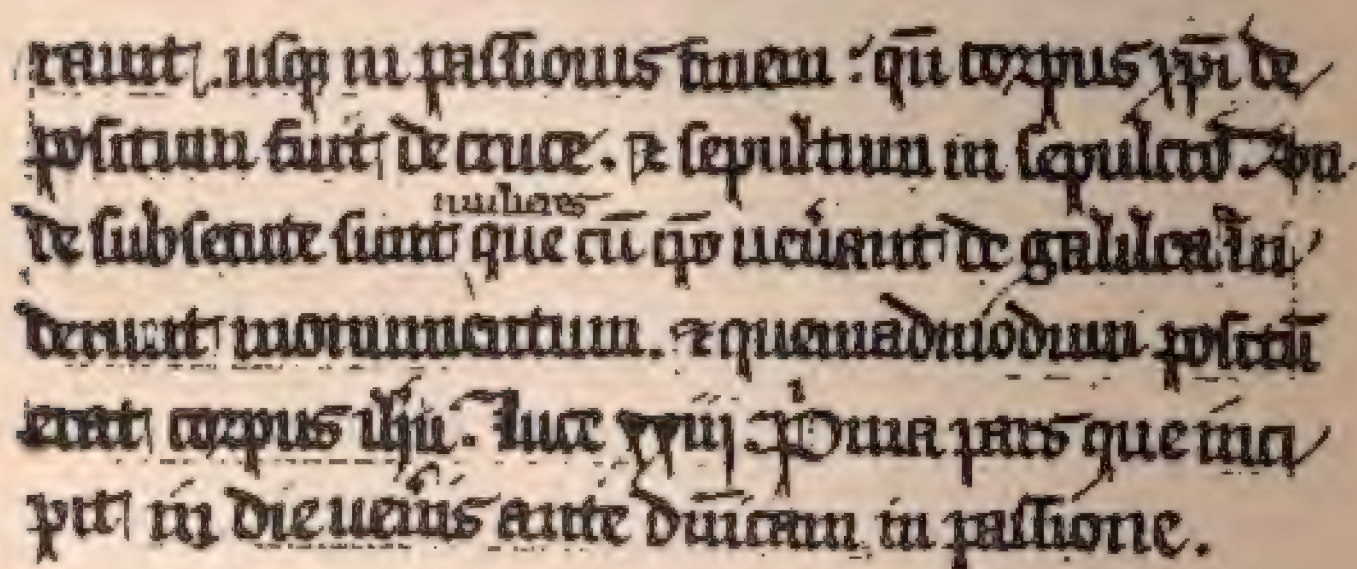 rant, usq; in passionis finem: qn̄ corpus xp̄i de
positum fuit de cruce. ⁊ sepultum in sepulcro. ⁊ vn
de subsecute sunt
mulieres
que cū q̄o uen̾ant de galilea ui
derunt monumentum. ⁊ quemadmodum positū
erat corpus ih̄u. luce xxiij. Pⁱma pars que inci
pit in die uen̾is ante dn̄icam in passione.